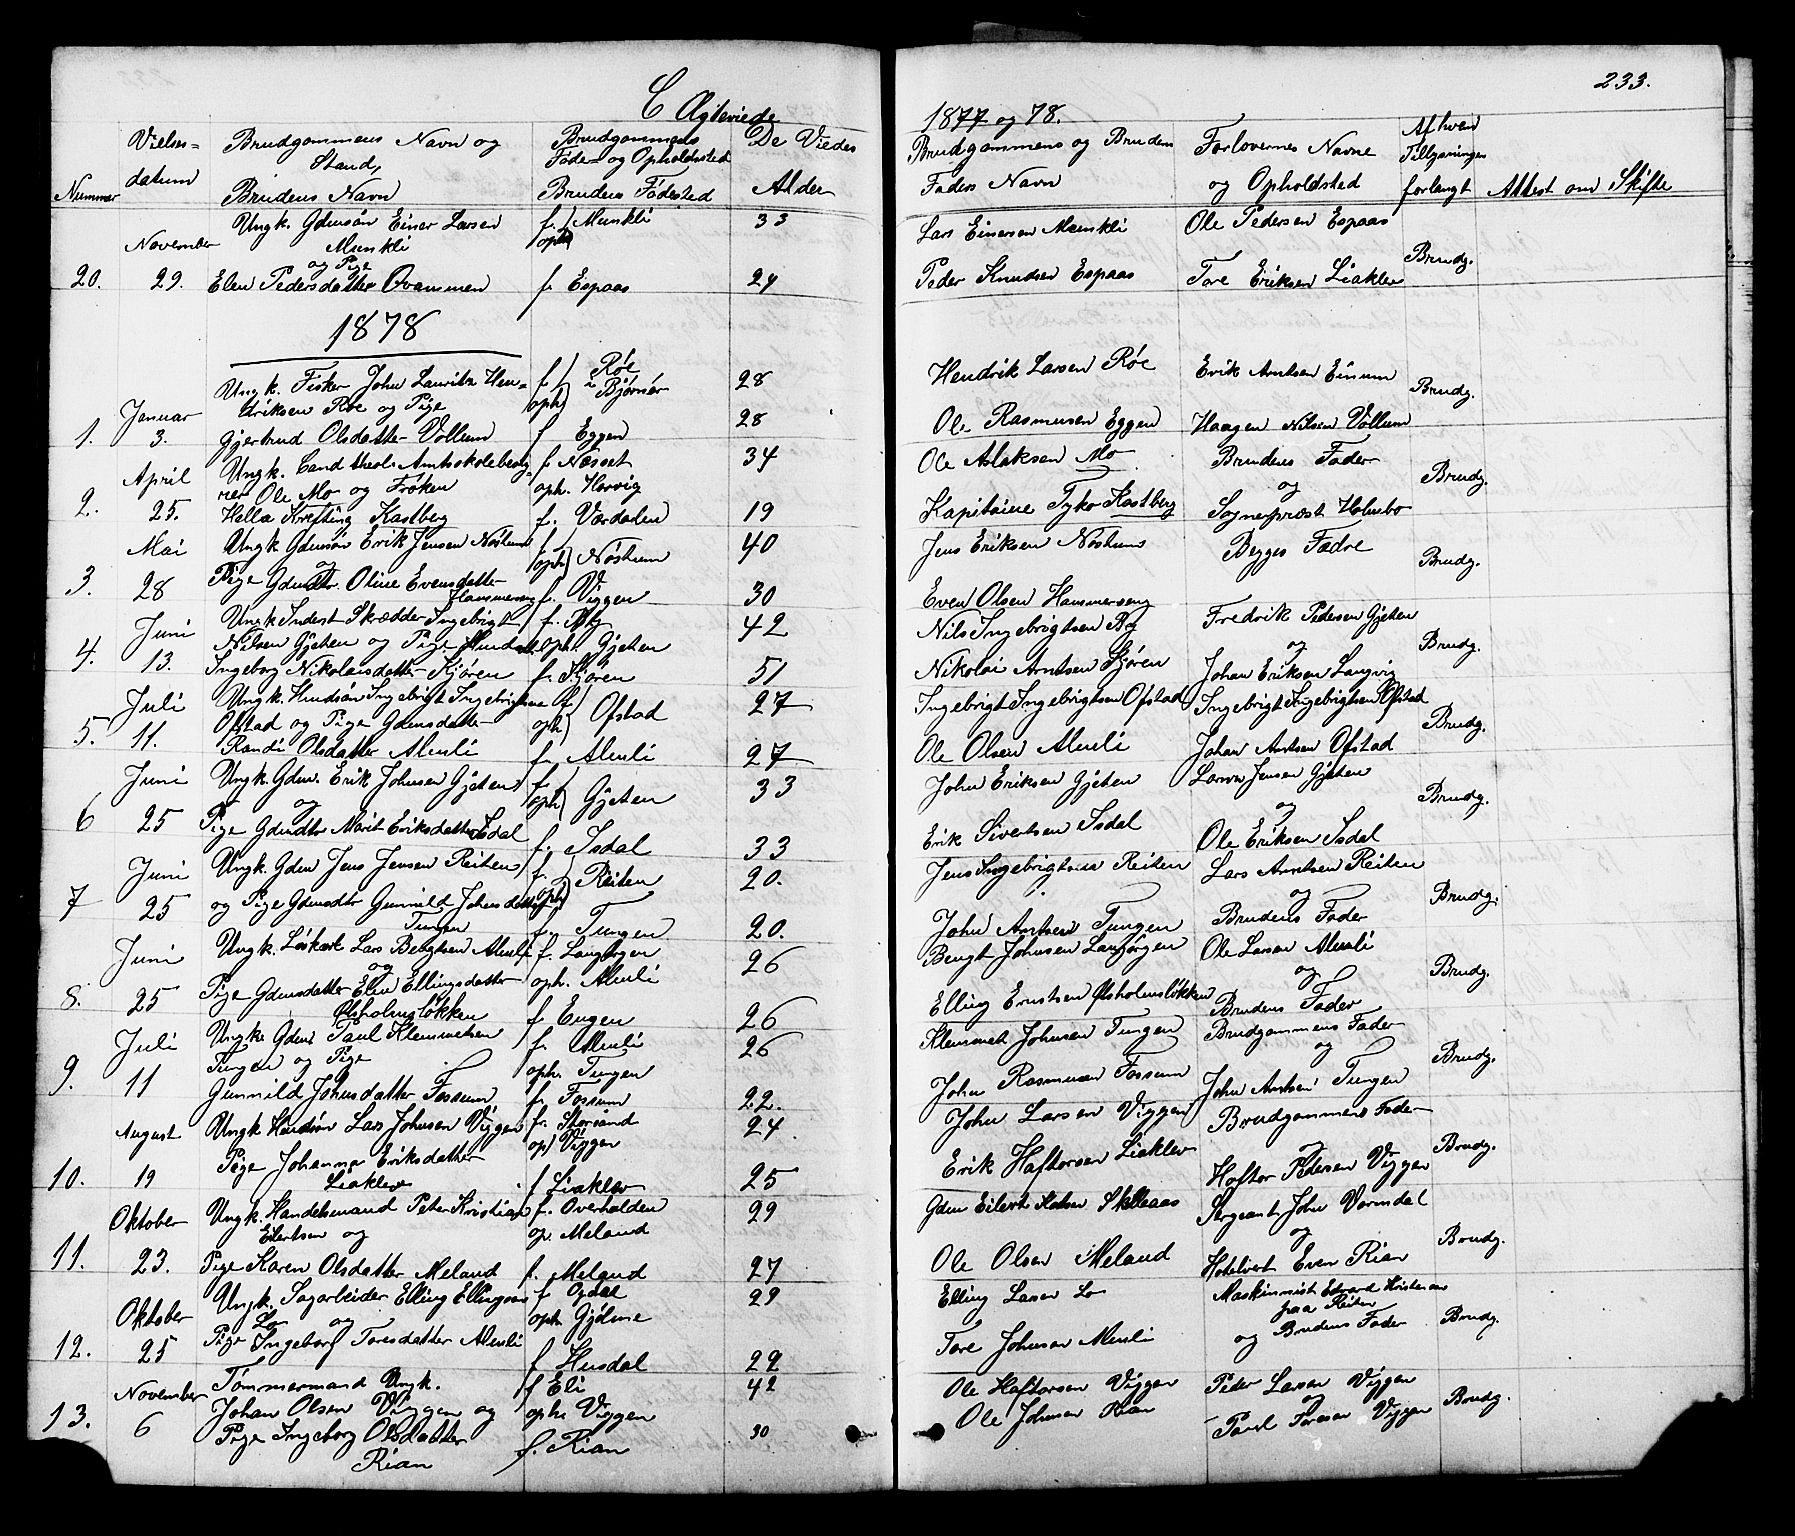 C Ægteviede
1877 og 78.
233.
Nummer
Vielses=
datum
Brudgommens Navn og
Stand,
Brudens Navn
Brudgommens
Føde= og Opholdssted
Brudens Fødested
De Viedes
Alder
Brudgommens og Brudens
Faders Navn
Forlovernes Navne
og Opholdsted
Af hvem
Tillysningen
forlangt
Attest om Skifte
20.
November
29.
Ungk. Gdmsøn Einer Larsen
Munkli
og Pige
Elen Pedersdatter
f. }
oph } Munkli
f. Espaas
33
24
Lars Einersen Munkli
Peder Knudsen Espaas
Ole Pedersen Espaas
Tore Eriksen Liaklev
Brudg.
1878
1.
Januar
3.
Ungk. Fisker John Lauritz Hen=
driksen Røe og Pige
Gjertrud Olsdatter Vollum
f. } Røe
oph } i Bjørnør
f Eggen
28
28
Hendrik Larsen Røe
Ole Rasmusen Eggen
Erik Arntsen Einum
Haagen Nilsen Vollum
Brudg.
2.
April
25.
Ungk. Cand theol. Amtsskolebesty=
rer Ole Mo og Frøken
Hella Krefting Kastberg
f. Næsset
oph. Horvig
f. Værdalen
34
19
Ole Aslaksen Mo
Kapitaine Tyko Kastberg
Brudens Fader
og
Sognepræst Holmbo
Brudg.
3.
Mai
28
Ungk Gdmsøn Erik Jensen Nostum
og
Pige Gdmdtr. Oline Evensdatter
Hammerseng
f. }
oph } Nostum
f. Viggen
40
30
Jens Eriksen Nostum
Even Olsen Hammerseng
Begges Fædre
Brudg.
4.
Juni
13.
Ungk Inderst Skrædder Ingebrigt
Nilsen Gjeten og Pige
Ingeborg Nikolaisdatter Kjøren
f. By
oph. Gjeten
f. Kjøren
42
51
Nils Ingebrigtsen By
Nikolai Arntsen Kjøren
Fredrik Pedersen Gjeten
og
Johan Eriksen Langvig
Brudg.
5.
Juli
11.
Ungk. Husmsøn Ingebrigt Ingebrigtsen
Ofstad og Pige Gdmsdatter
Randi Olsdatter Almli
f }
oph } Ofstad
f. Almli
27
27
Ingebrigt Ingebrigtsen Ofstad
Ole Olsen Almli
Ingebrigt Ingebrigtsen Ofstad
Johan Arntsen Ofstad
Brudg.
6
Juni
25
Ungk. Gdm. Erik Johnsen Gjeten
og
Pige Gdmdtr Marit Eriksdatter Isdal
f. }
oph } Gjeten
f. Isdal
33
33
John Eriksen Gjeten
Erik Sivertsen Isdal
Jensen Gjeten
og
Ole Eriksen Isdal
Brudg.
7
Juni
25
Ungk. Gdm Jens Jensen Reiten
og Pige Gdmsdtr Gunnild Johnsdatter
Tungen
f. }
oph } Reiten
f. Tungen
20.
20.
Jens Ingebrigtsen Reiten
John Arntsen Tungen
Lars Arntsen Reiten
og
Brudens Fader
Brudg.
8.
Juni
25
Ungk. Løskark Lars Bengtsen Almli
og
Pige Gdmsdatter Elen Ellingsdatter
Øfsholmsløkken
f. Langørgen
oph. Almli
f Engen
26
26
Bengt Johnsen Langørgen
Elling Erntsen Øfsholmsløkken
Ole Larsen Almli
og
Brudens Fader
Brudg.
9.
Juli
11
Ungk. Gdm. Paul Klemmetsen
Tungen og Pige
Gunnild Johnsdatter Fossum
f. Almli
oph. Tungen
f. Fossum
26
22.
Klemmet Johnsen Tungen
John Rasmusen Fossum
Brudgommens Fader
og
John Arntsen Tungen
Brudg.
10.
August
19
Ungk. Husmsøn Lars Johnsen Viggen
Pige Johanna Eriksdatter
Liaklev
f. Storsand
op Viggen
f Liaklev
24
25
John Larsen Viggen
Erik Haftorsen Liaklev
Brudgommens Fader
og
Haftor Pedersen Viggen
Brudg.
11.
Oktober
23.
Ungk. Handelsmand Peter Kristian
Eilertsen og
Pige Karen Olsdatter Meland
f. Overhalden
op. Meland
f. Meland
29
27
Gdm Eilert Skilleaas
Ole Olsen Meland
Sergeant John Vormdal
og
Hotelvert Even Rian
Brudg.
12.
Oktober
25
Ungk. Sagarbeider Elling Ellingsen
Lo og
Pige Ingeborg Toresdatter Almli
f Opdal
oph Gjølme
f Husdal
29
22
Elling Larsen Lo
Tore Johnsen Almli
Maskinmist Edvard Kristensen
paa Reiten
og Brudens Fader
Brudg.
13.
November
6
Tømmermand Ungk.
Johan Olsen Viggen og
Pige Ingeborg Olsdatter
Rian
f Eli
oph. Viggen
f. Rian
42
30
Ole Haftorsen Viggen
Ole Johnsen Rian
Peder Larsen Viggen
og
Paul Toresen Viggen
Brudg.